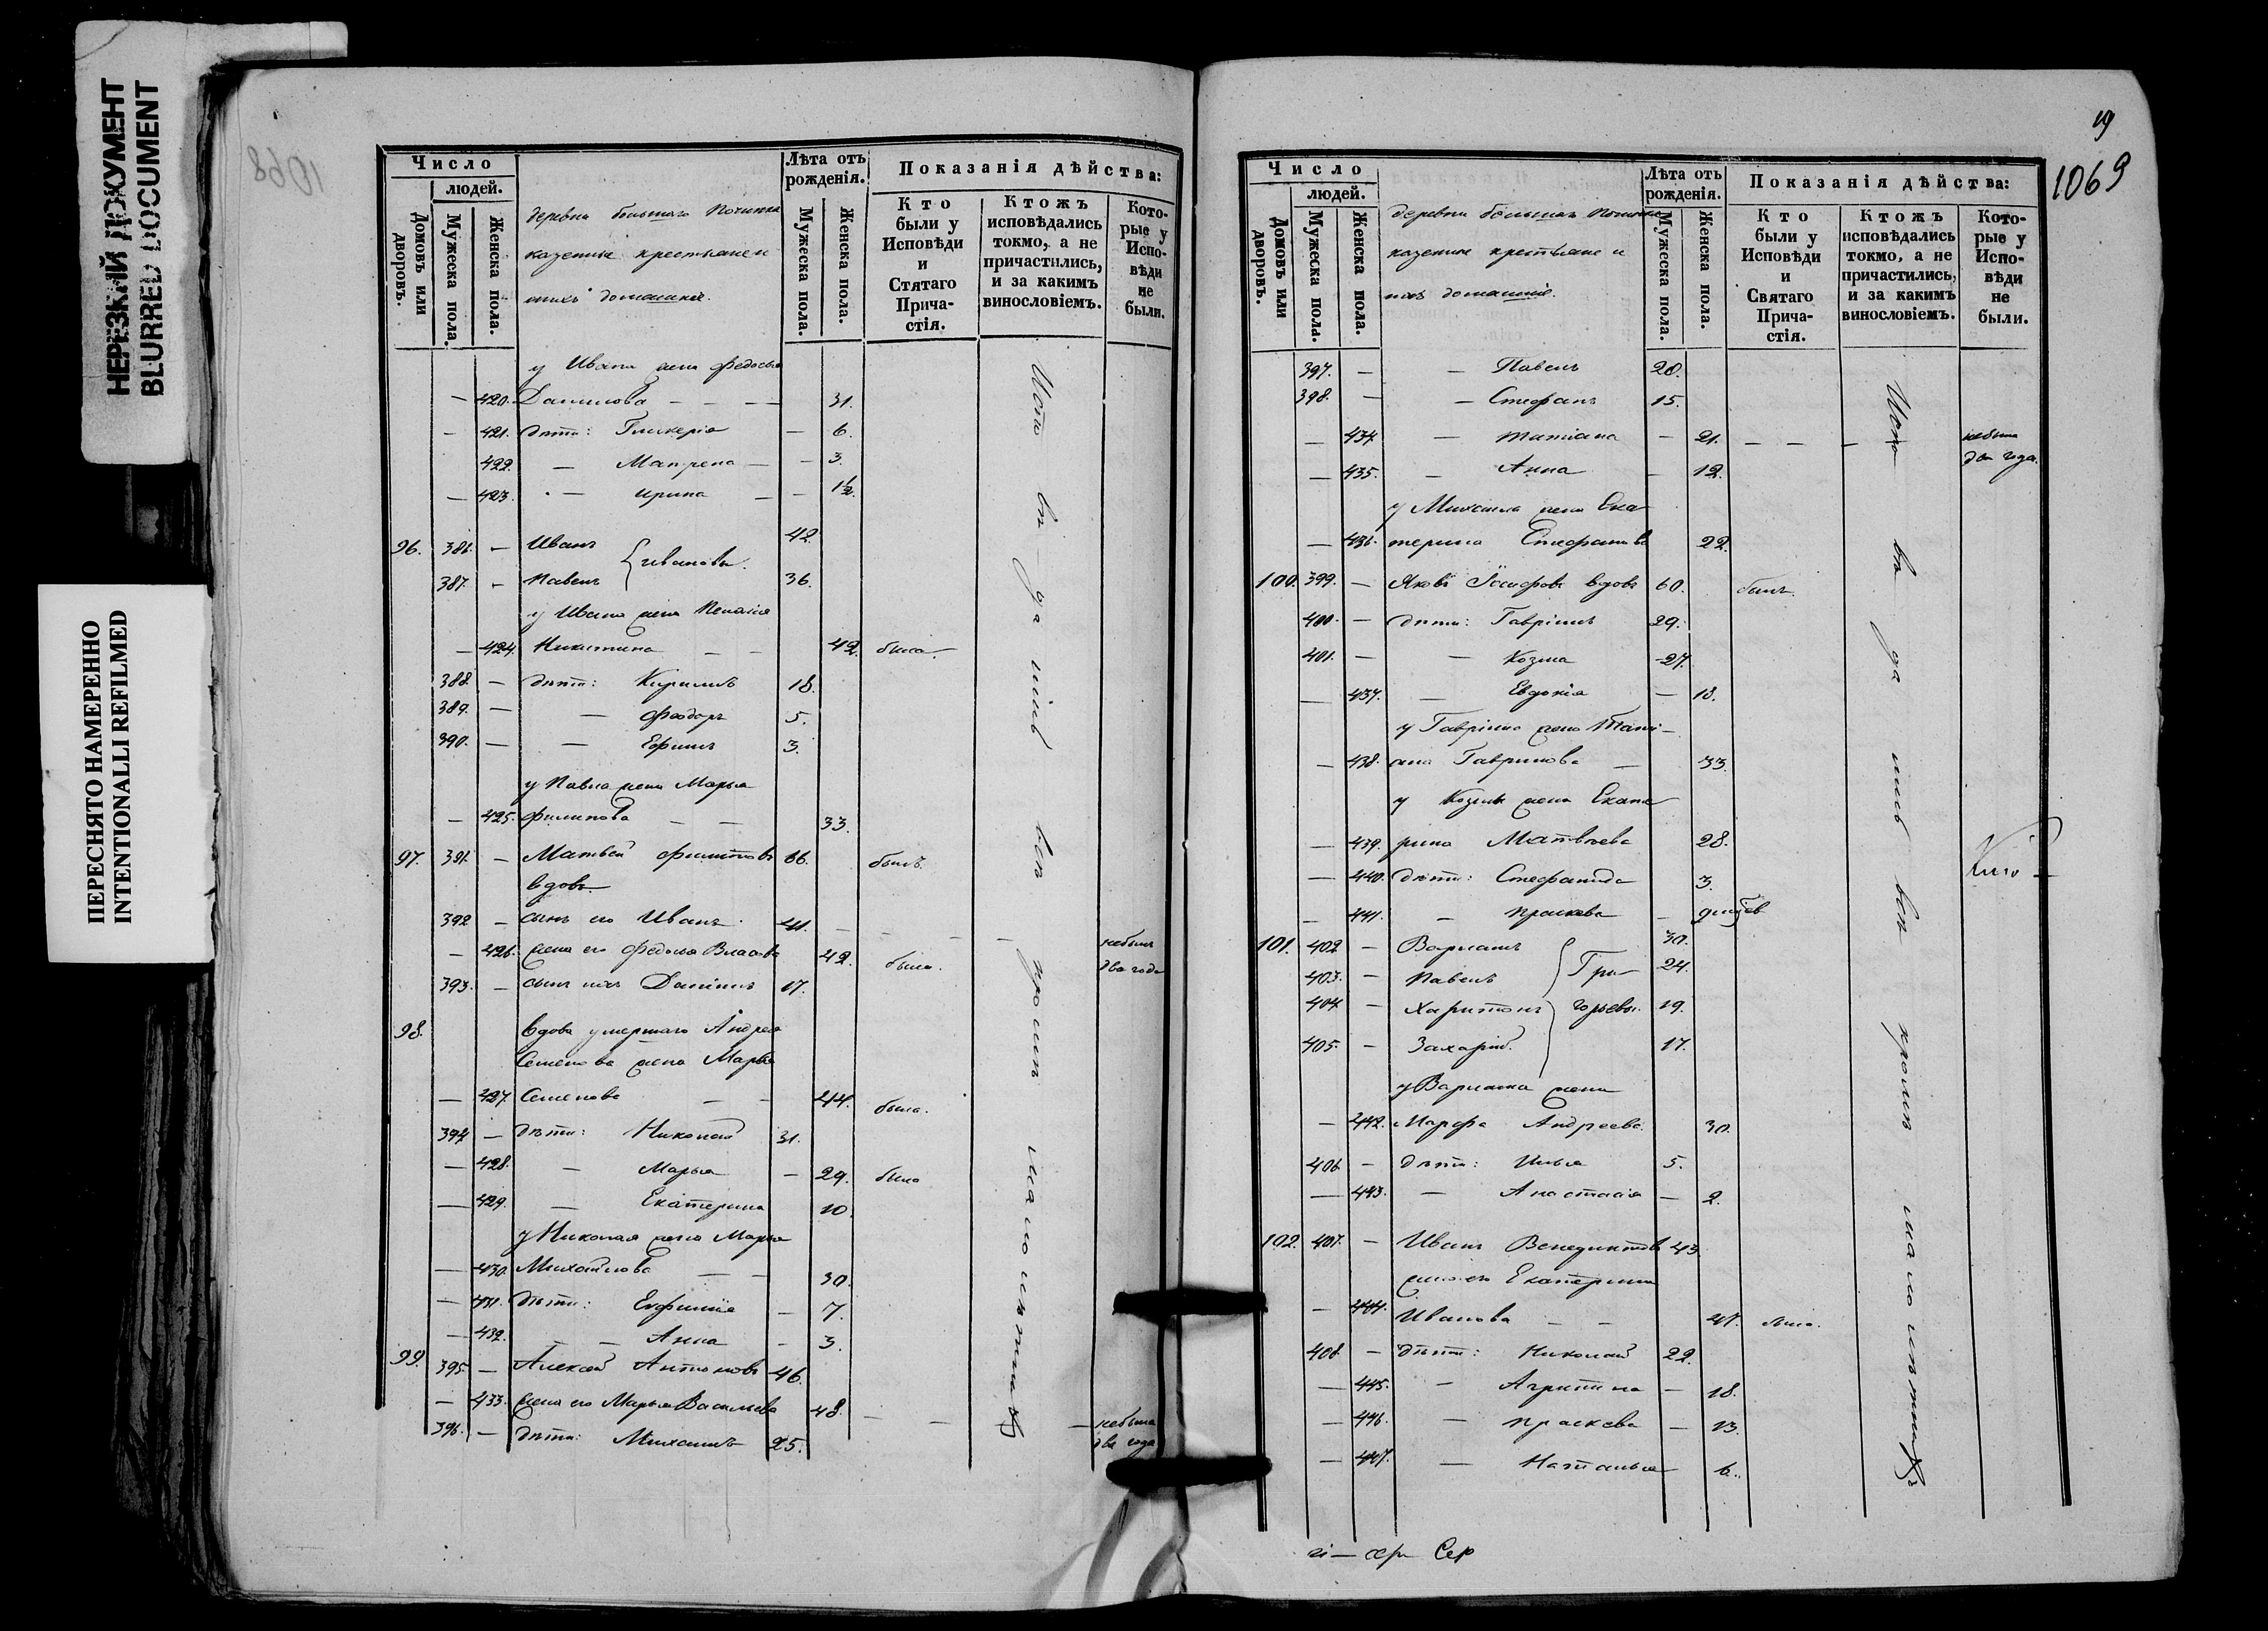 НЕРЕЗКИЙ ДОКУМЕНТ
BLURRED DOCUMENT
ПЕРЕСНЯТО НАМЕРЕННО
INTENTIONALLI REFILMED
1068
Число
людей.
Домовъ или дворовъ.
Мужеска пола.
Женска пола.
деревни большаго Починка
казенные крестьяне и
ихъ домашніе.
Лѣта отъ рожденія.
Мужеска пола.
Женска пола.
Показанія дѣйства:
Кто были у Исповѣди и Стятаго Причастія.
Ктожъ исповѣдались токмо, а не причастились, и за какимъ винословіемъ.
Которые у Исповѣди не были.
у Ивана жена Федосья
— 420. Данилова — — — 31.
— 421. дѣти: Гликерія — 6.
422. — Матрена — — 3.
— 423. — Ирина — — 1½.
96. 386. — Иванъ 42.
Ивановы.
387. — Павелъ 36.
у Ивана жена Пелагія
— 424. Никитина — — 42. была.
388. — дѣти: Кирилъ 18.
389. — — Феодоръ 5.
390. — — Ефимъ 3.
у Павла жена Марья
— 425. Филипова — — 33.
97. 391. — Матвей Филиповъ 66. былъ.
вдовъ
392 — сынъ его Иванъ 41. — — — — небылъ два года
— 426. жена его Федосья Власова 42. была.
393. — сынъ ихъ Данилъ 17.
98. вдова умершаго Андрея
Семенова жена Марья
— 427. Семенова — — 44. была.
394 — дѣти: Николай 31.
— 428. — Марья — 29. была
— 429. — Екатерина 10.
у Николая жена Марья
— 430. Михайлова — — 30.
— 431. дѣти: Евфимія — 7.
— 432. — — Анна — 3.
99. 395. — Алексей Антоновъ 46.
— 433. жена его Марья Васильева 48. — — — небыла два года
396. — дѣти: Михаилъ 25.
19
1069
Число
людей.
Домовъ или дворовъ.
Мужеска пола.
Женска пола.
деревни большаго Починка
казенные крестьяне и
ихъ домашніе.
Лѣта отъ рожденія.
Мужеска пола.
Женска пола.
Показанія дѣйства:
Кто были у Исповѣди и Святаго Причастія.
Ктожъ исповѣдались токмо, а не причастились, и за какимъ винословіемъ.
Которые у Исповѣди не были.
397. — — Павелъ 20.
398. — — Стефанъ 15.
— 434. — Татіана — 21. — — — небыла два года.
— 435. — Анна — 12.
у Михаила жена Ека-
— 436. терина Стефанова 22.
100. 399. — Яковъ Іосифовъ вдовъ 60. былъ.
400. — дѣти: Гаврилъ 29.
401. — — Козма 27.
— 437. — Евдокія — 18.
у Гаврила жена Тати-
— 438. ана Гаврилова — 33.
у Козмы жена Екате
— 439. рина Матвѣева 28.
— 440. дѣти: Стефанида 3.
— 441. — Праскева —
101. 402 — Варламъ 30.
403. — Павелъ Гри- 24.
404 — Харитонъ горьевы. 19.
405. — Захарій. 17.
у Варлама жена
— 442. Марфа Андреева. 30.
406 — дѣти: Илья 5.
— 443. — Анастасія — 2.
102. 407. — Иванъ Венедиктовъ 43.
жена его Екатерина
— 444. Иванова — — 47. была.
408. — дѣти: Николай 22.
— 445. — Агрипина — 18.
— 446. — Праскева — 13.
— 447. — Наталья 6.